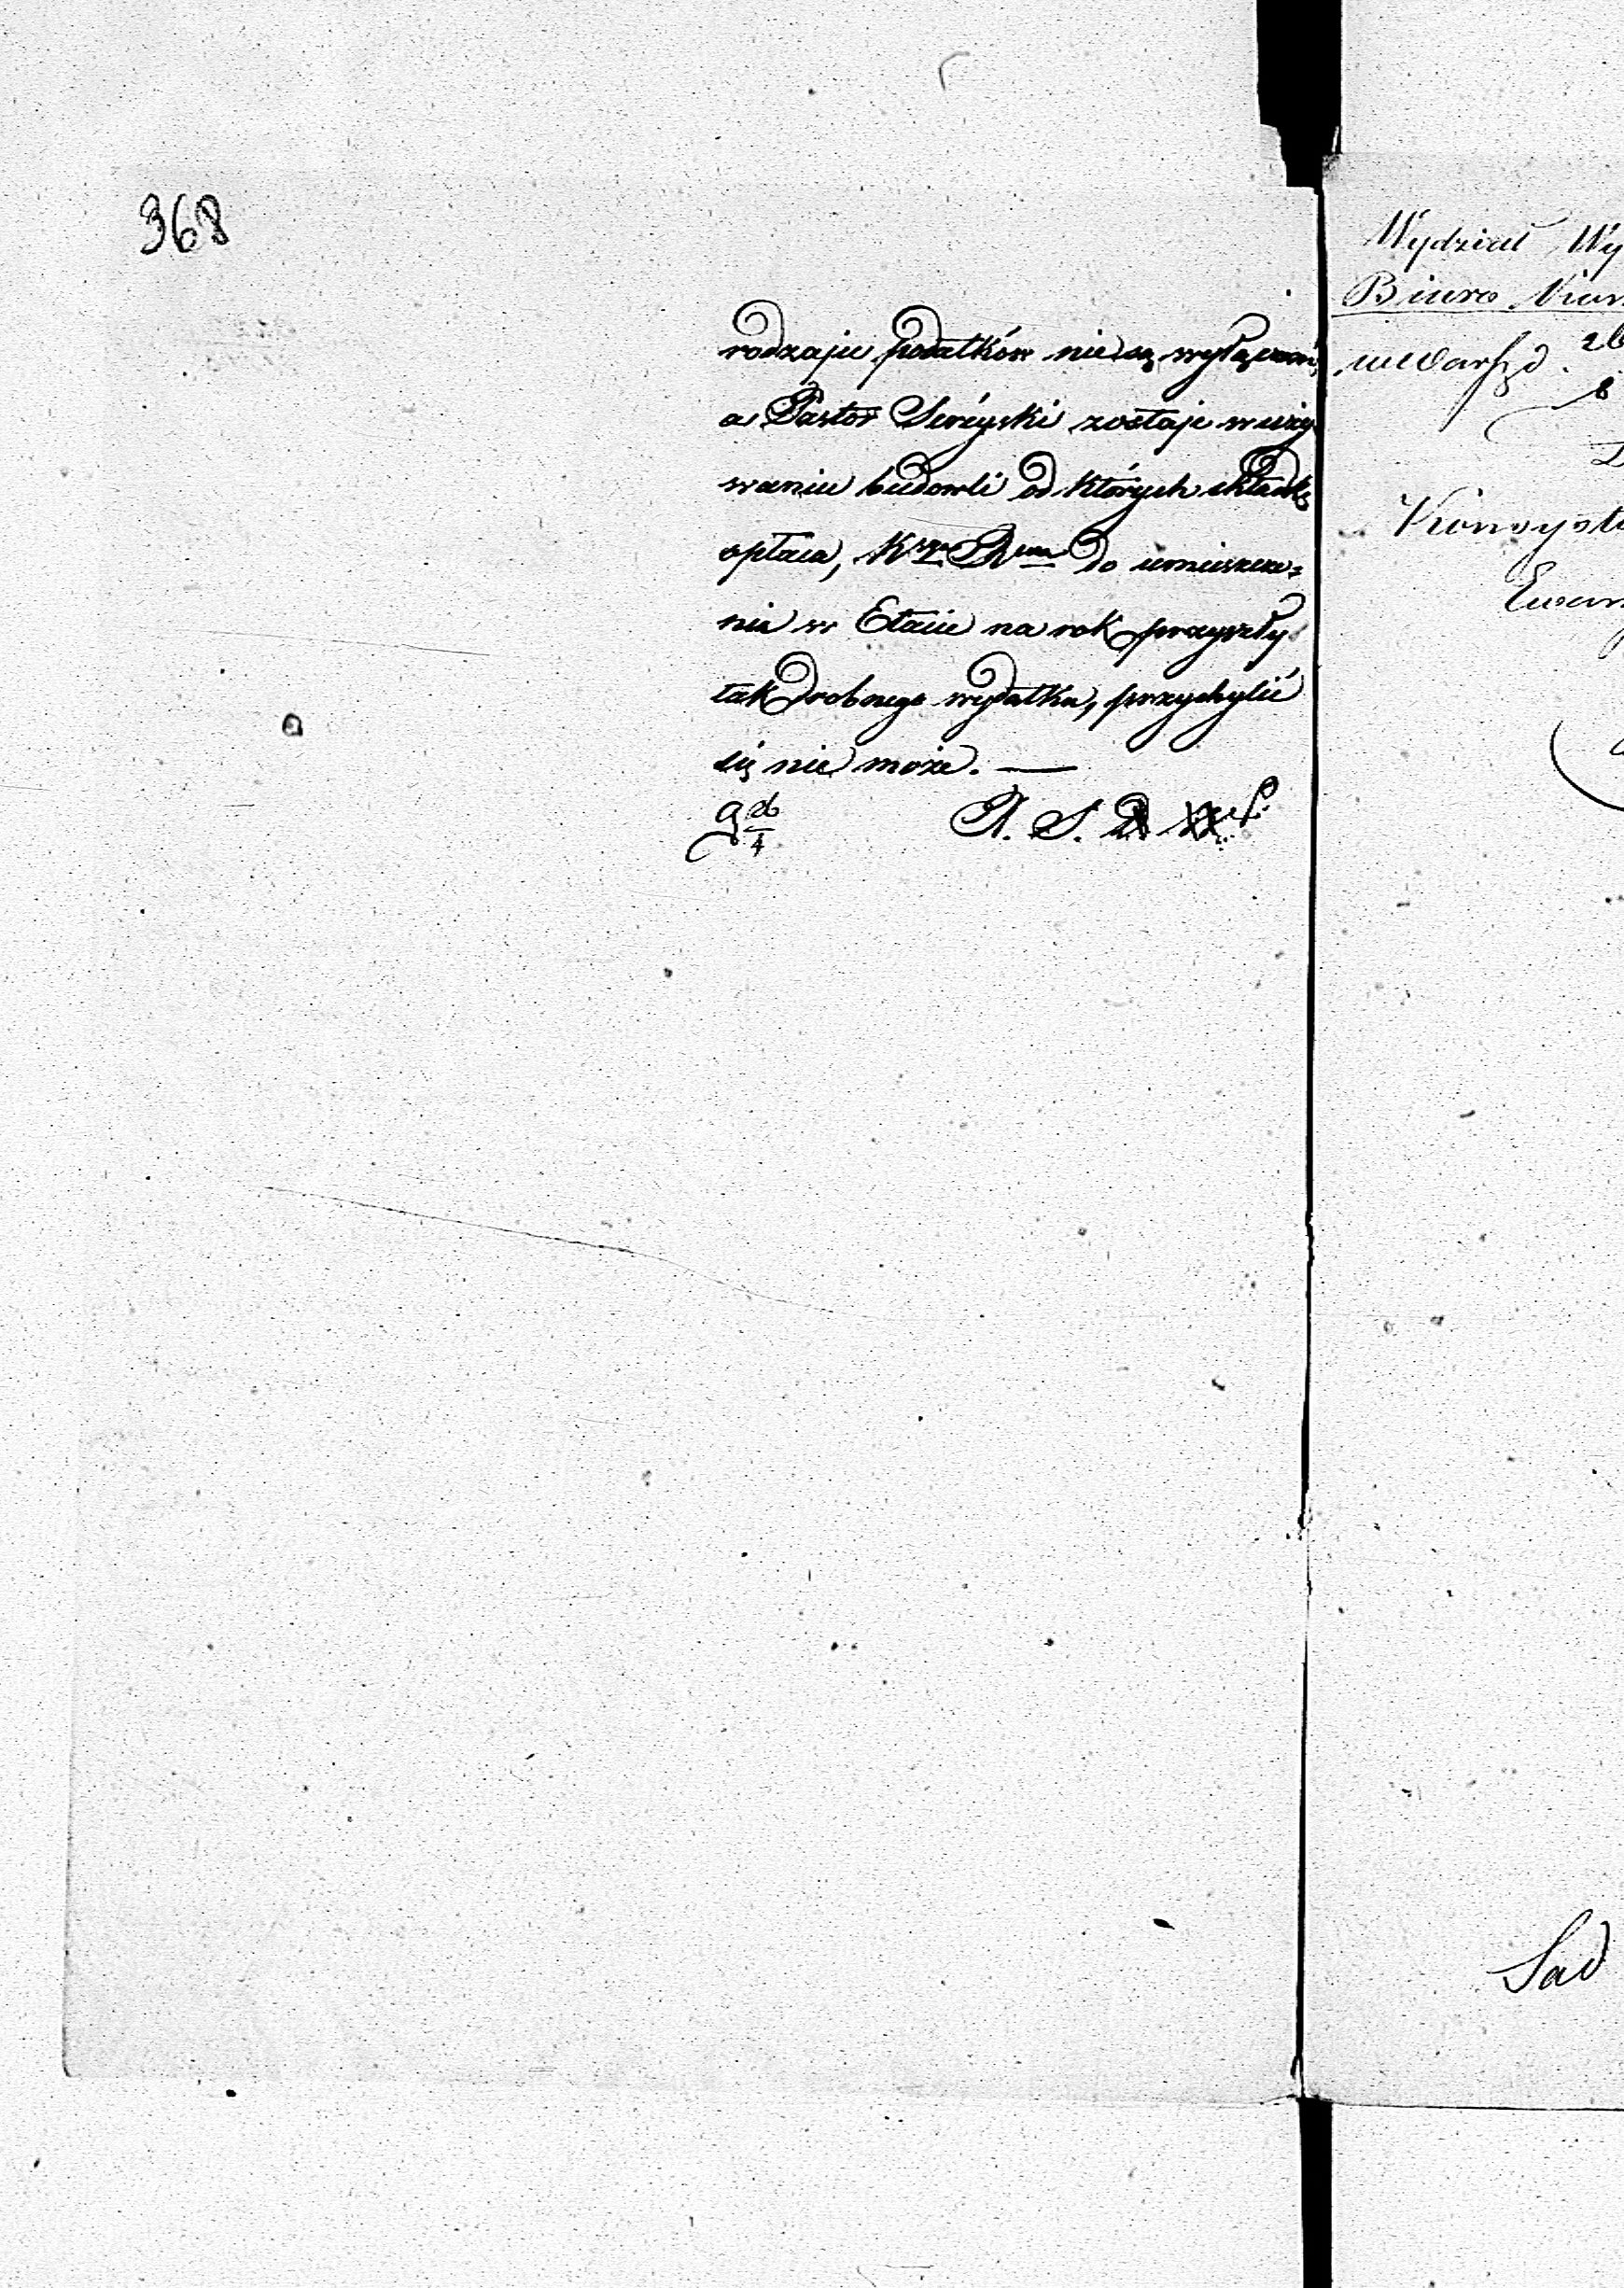 368
rodzaje podatków nie są wyłączeni,
a Pastor Sereyski zostaje w uży
waniu budowli od których składkę
opłaca, do umieszcze=
nia w Etacie na rok przyszły
tak drobnego wydatku, przychylić
się nie może. —
26
4
Wydział Wy
Biuro
w Warsz d. 26
8
Konsyst
Ewan
Sad